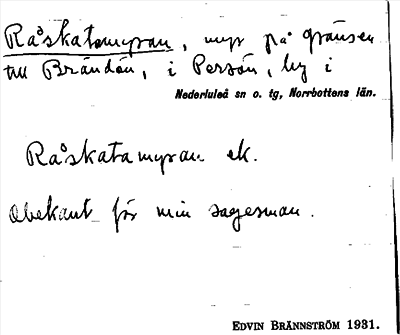 Råskatamyran, myr på gränsen
till Brändön, i Persön, by i
Nederluleå sn o. tg, Norrbottens län.
Råskatamyran ek.
Obekant för min sagesman.
EDVIN BRÄNNSTRÖM 1931.